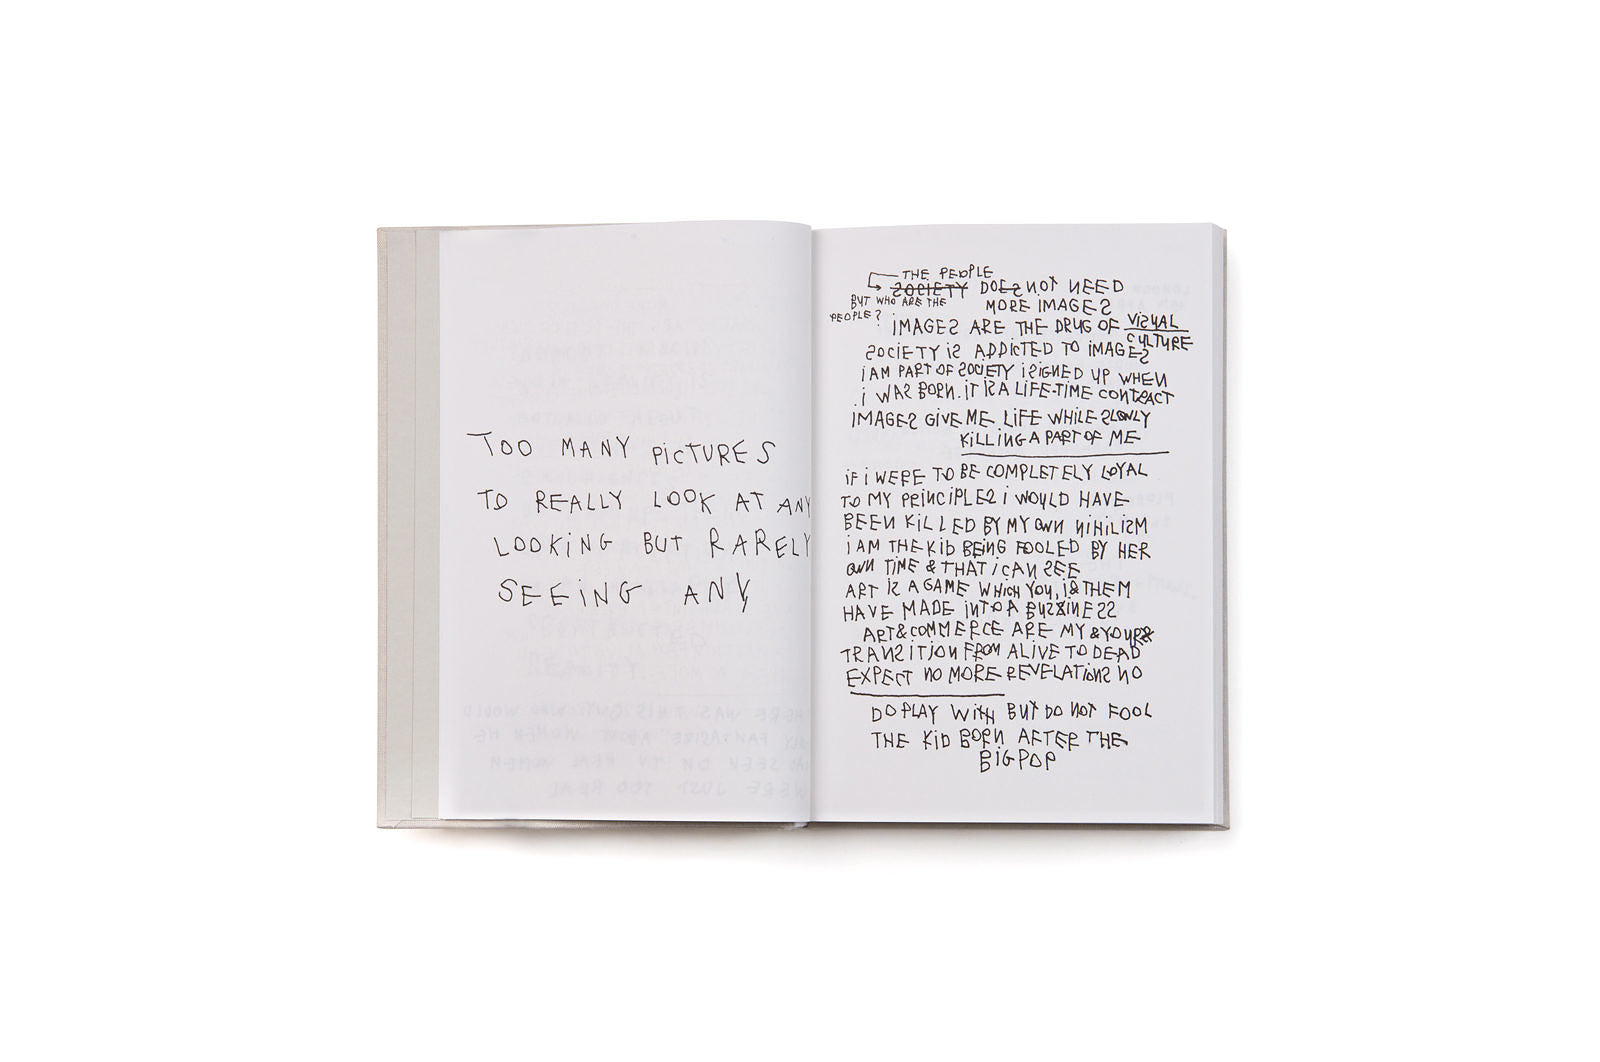 TOO MANY PiCTURES
TO REALLY LOOK AT ANY
LOOKiNG BUT RARELY
SEEiNG ANY
THE PEOPLE
SOCiETY DOES NOT NEED
BUT WHO ARE THE
PEOPLE?
MORE iMAGES
iMAGES ARE THE DRUG OF ViSUAL
CULTURE
SOCiETY iS ADDiCTED TO iMAGES
i AM PART OF SOCiETY i SiGNED UP WHEN
i WAS BORN. iT iS A LiFE-TiME CONTRACT
iMAGES GiVE ME LiFE WHiLE SLOWLY
KiLLiNG A PART OF ME
iF i WERE TO BE COMPLETELY LOYAL
TO MY PRiNCiPLES i WOULD HAVE
BEEN KiLLED BY MY OWN NiHiLiSM
i AM THE KiD BEiNG FOOLED BY HER
OWN TiME & THAT i CAN SEE
ART iS A GAME WHiCH YOU, i & THEM
HAVE MADE iNTO A BUSiNESS
ART & COMMERCE ARE MY & YOURS
TRANSiTiON FROM ALiVE TO DEAD
EXPECT NO MORE REVELATiONS NO
DO PLAY WiTH BUT DO NOT FOOL
THE KiD BORN AFTER THE
BiG POP